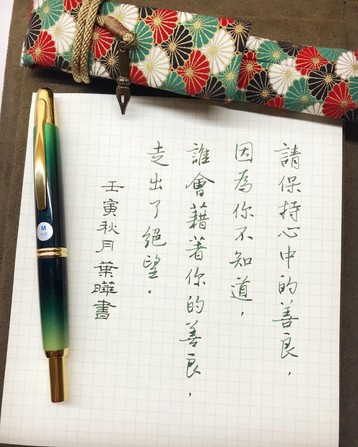 請保持心中的善良，
因為你不知道，
誰會藉著你的善良，
走出了絕望．
壬寅秋月葉曄書
M